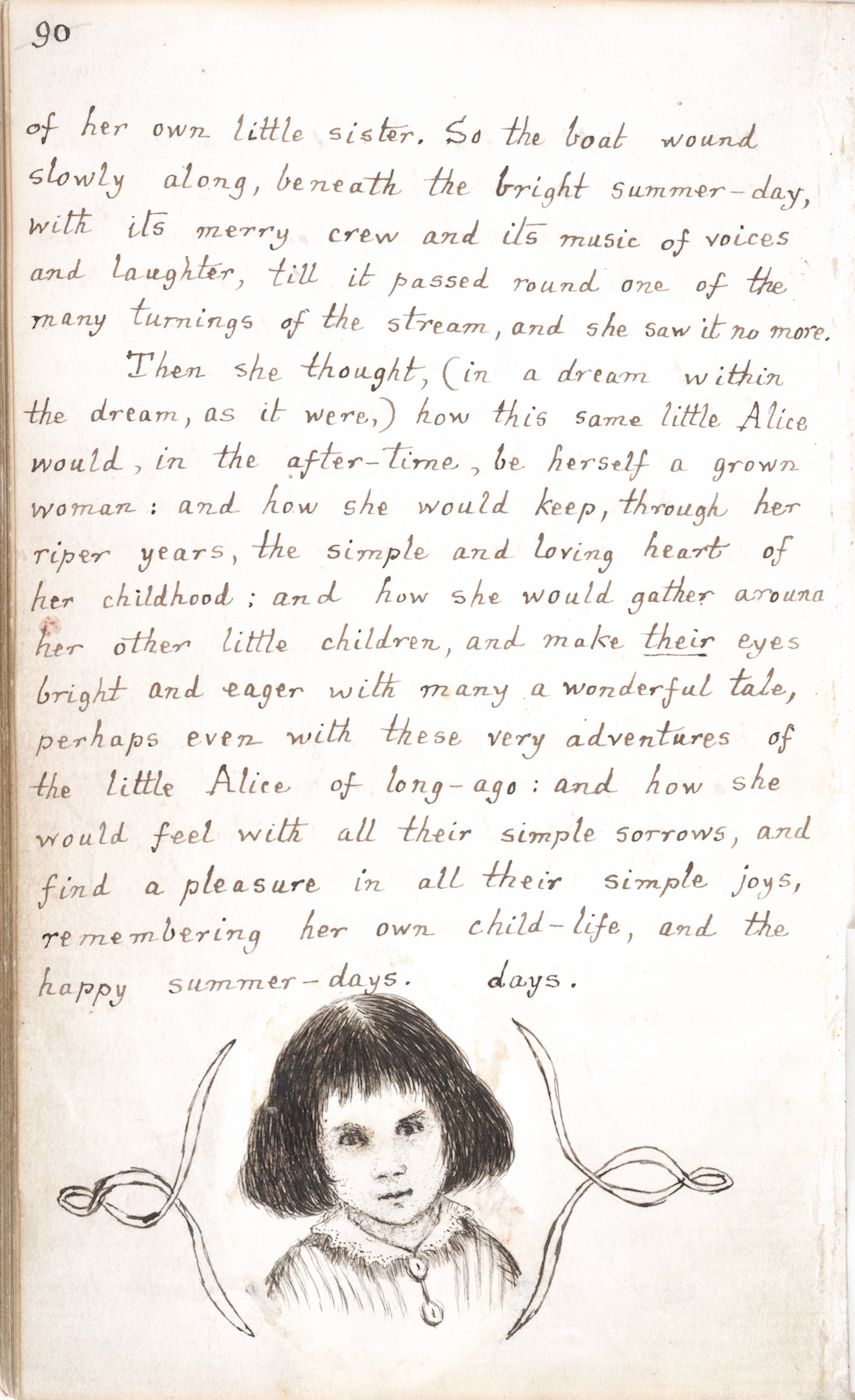 90
of her own little sister. So the boat wound
slowly along, beneath the bright summer-day,
with its merry crew and its music of voices
and laughter, till it passed round one of the
many turnings of the stream, and she saw it no more.
Then she thought, (in a dream within
the dream, as it were,) how this same little Alice
would, in the after-time, be herself a grown
woman: and how she would keep, through her
riper years, the simple and loving heart of
her childhood: and how she would gather around
her other little children, and make their eyes
bright and eager with many a wonderful tale,
perhaps even with these very adventures of
the little Alice of long-ago: and how she
would feel with all their simple sorrows, and
find a pleasure in all their simple joys,
remembering her own child-life, and the
happy summer-days. days.